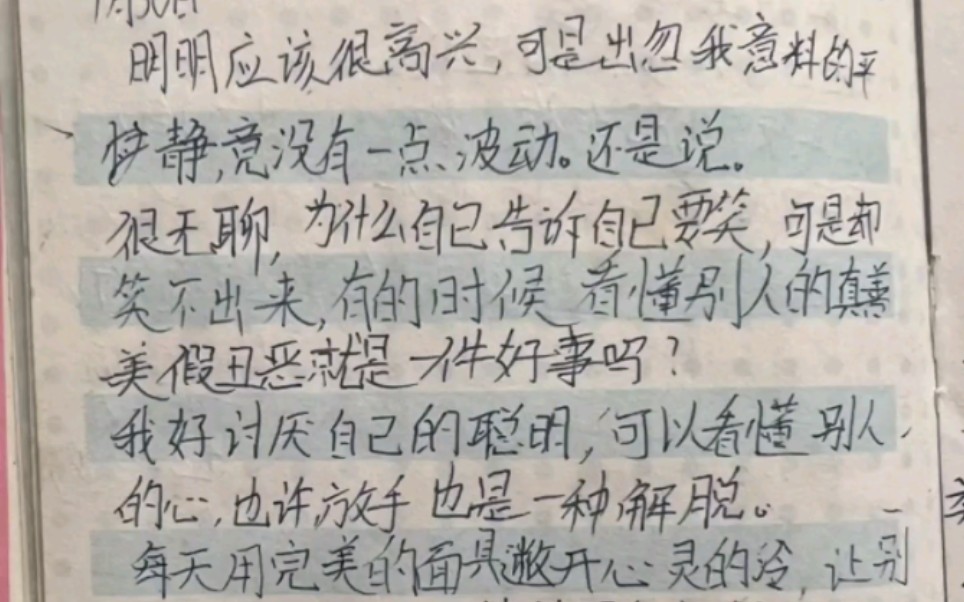 月30日
明明应该很高兴,可是出忽我意料的平
静,竟没有一点波动。还是说。
很无聊,为什么自己告诉自己要笑,可是却
笑不出来,有的时候看懂别人的真善
美假丑恶就是一件好事吗?
我好讨厌自己的聪明,可以看懂别人
的心,也许放手也是一种解脱。
每天用完美的面具敝开心灵的冷,让别